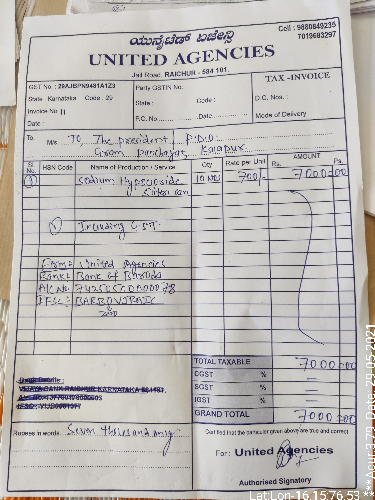 Cell : 9880849235
7019683297
ಯುನೈಟೆಡ್ ಏಜೇನ್ಸಿ
UNITED AGENCIES
Jail Road, RAICHUR - 584 101.
GST No : 29AJBPN9481A1Z3
Party GSTIN No:
TAX -INVOICE
State Karnataka Code : 29
State : Code :
D.C. Nos. :
Invoice No 11
P.C. No. Date:
Mode of Delivery
Date :
To.
M/s To, The president / P.D.O.
Gram Panchayat,
Sl. No. HSN Code Name of Production / Service Qty Rate per Unit AMOUNT Rs. Ps.
1 Sodium 10 700/- 7000=00
Including G.S.T.
Firm: United Agencies
Bank: Bank of Baroda
A/c No:
IFSC:
TOTAL TAXABLE 7000=00
CGST % =
SGST % =
IGST % =
GRAND TOTAL 7000=00
VIJAYA BANK RAICHUR KARNATAKA
Rupees in words Seven thousand only
Certified that the particular given above are true and correct
For : United Agencies
Authorised Signatory